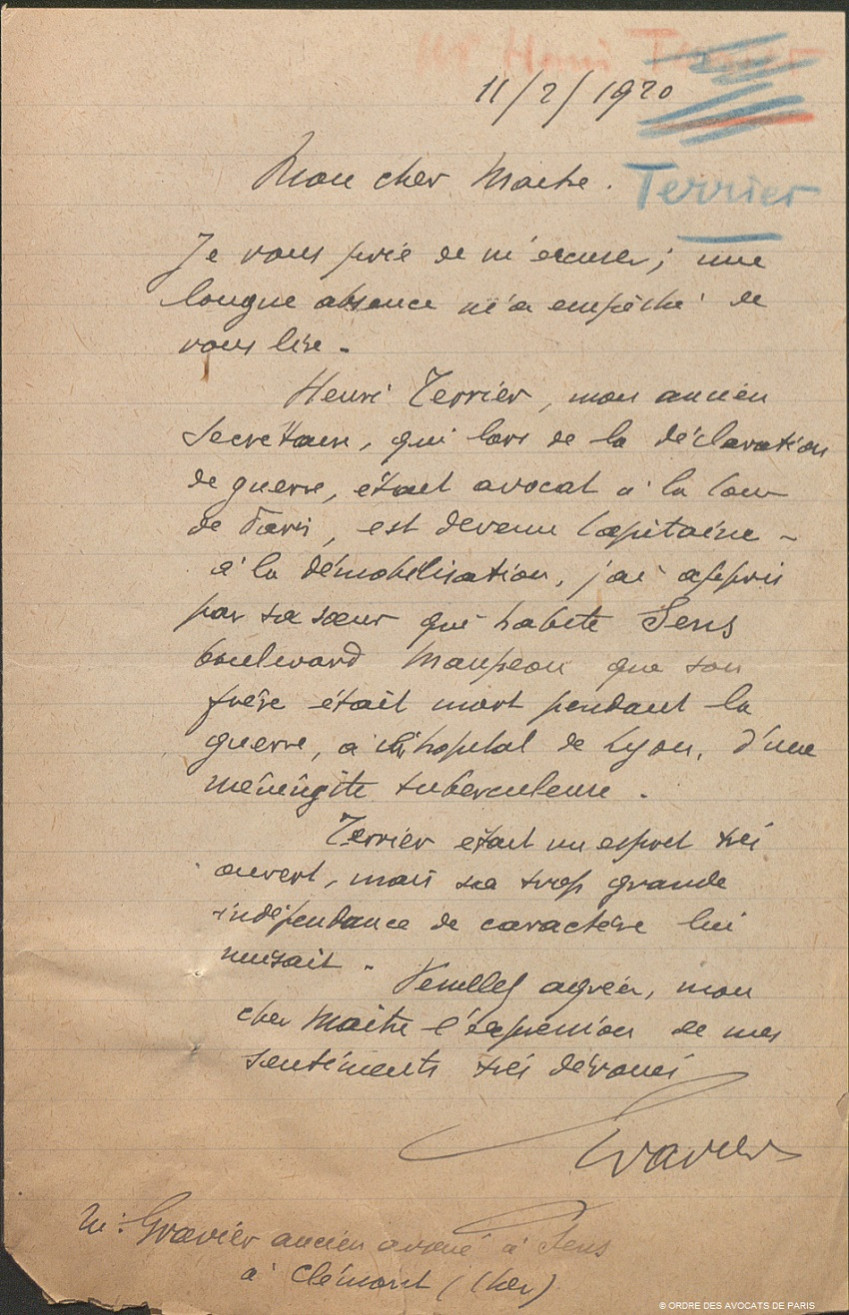 Mr Henri Terrier
11/2/1920
Mon cher Maitre.
Terrier
Je vous prie de m'excuser ; une
longue absence m'a empêché de
vous lire.
Henri Terrier, mon ancien
secrétaire, qui lors de la déclaration
de guerre, était avocat à la Cour
de Paris, est devenu Capitaine -
à la démobilisation, j'ai appris
par sa sœur qui habite Sens
boulevard Maupeou que son
frère était mort pendant la
guerre, à l'hopital de Lyon, d'une
méningite tuberculeuse.
Terrier était un esprit très
ouvert, mais sa trop grande
indépendance de caractère lui
nuisait. Veuillez agréer, mon
cher Maitre l'expression de mes
sentiments très dévoués
Gravier
M. Gravier ancien avoué à Sens
à Clémont (Cher)
© ORDRE DES AVOCATS DE PARIS